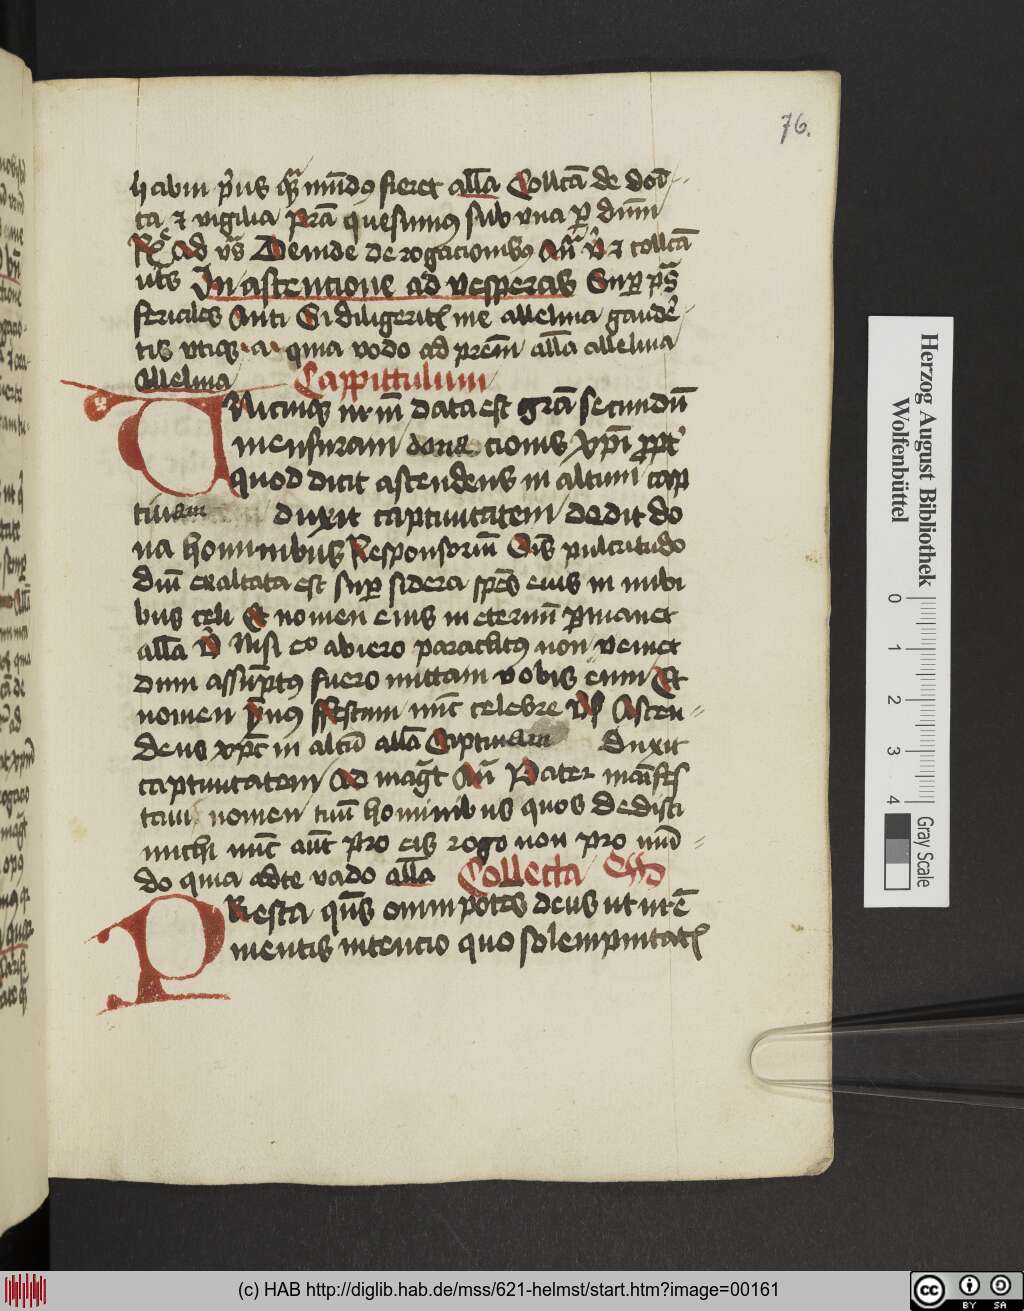 76.
habui p̄us q̄ mūdꝯ fieret all̄a Collcā de dōi
ta ⁊ vigilia p̄ra quesumꝯ sub vna ꝑ dūm
Ad v̄s Deinde de rogacionibꝯ An̄ v̄ ⁊ collcā
uts In ascencione ad vesperas Suꝑ p̄s
feriales Anti Si diligeritꝭ me alleluia gaude
tis vtiqꝫ a quia vado ad prēm all̄a alleluia
Alleluia Cappittulum
Vnicuiqꝫ nrm̄ data est grā secundū
mensuram dona cionis xp̄i ꝓpt̓
quod dicit ascendens in altum cap
tiuam duxit captiuitatem dedit do
na hominibus Responsoriū Oīs pulcritudo
dūi exaltata est suꝑ sidera spēs eius in nubi
bus celi Et nomen eius in eternū ꝑmanet
all̄a v̄ Nisi eo abiero paraclitꝯ non veniet
dum assūptꝯ fuero mittam vobis eum Et
nomen ffestum nūc celebre Ascen
dens xp̄c in altū all̄a Captiuam Duxit
captiuitatem Ad maḡt An̄ Pater manīfes
taui nomen tuū hominibus quos dedisti
michi nūc aūt pro eis rogo non pro mū
do quia ad te vado all̄a Collecta
Presta qūs omnipotēs deus ut nrē
mentis intencio quo solempnitatꝭ
Herzog August Bibliothek
Wolfenbüttel
0 1 2 3 4
Gray Scale
(c) HAB http://diglib.hab.de/mss/621-helmst/start.htm?image=00161
cc BY SA